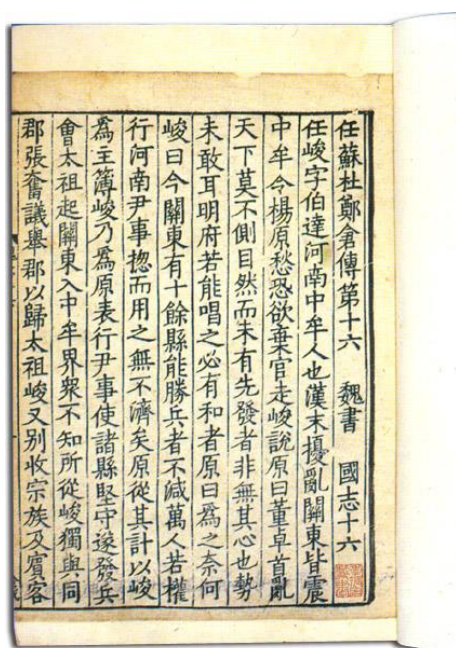 任蘇杜鄭倉傳第十六 魏書 國志十六
任峻字伯達河南中牟人也漢末擾亂關東皆震
中牟令楊原愁恐欲棄官走峻說原曰董卓首亂
天下莫不側目然而未有先發者非無其心也勢
未敢耳明府若能唱之必有和者原曰為之奈何
峻曰今關東有十餘縣能勝兵者不減萬人若權
行河南尹事揔而用之無不濟矣原從其計以峻
為主簿峻乃為原表行尹事使諸縣堅守遂發兵
會太祖起關東入中牟界衆不知所從峻獨與同
郡張奮議舉郡以歸太祖峻又別收宗族及賔客